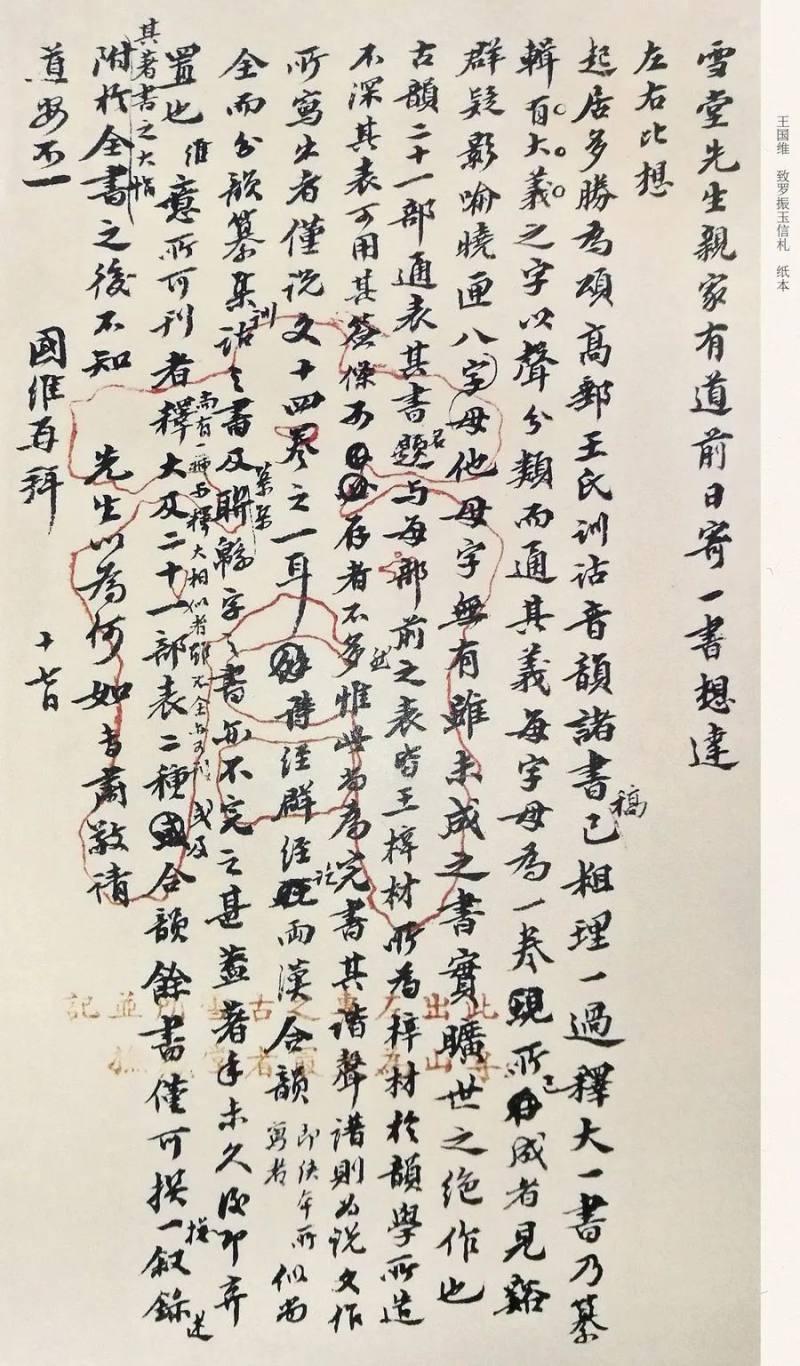 王国维　致罗振玉信札　纸本
雪堂先生親家有道前日寄一書想達
左右比想
起居多勝為頌高郵王氏訓詁音韻諸書稿已粗理一過釋大一書乃纂
輯有大義之字以聲分類而通其義每字母為一卷所已成者見谿
群疑影喻曉匣八字母他母字無有雖未成之書實曠世之絕作也
古韻二十一部通表其書題名与每部前之表皆王梓材所為梓材於韻學所造
不深其表可用其簽條可存者不多惟此尚為完書其諧聲譜則為說文作
所寫出者僅說文十四卷之一耳詩經群經兩漢合韻即佚年所寫者似尚
全而分韻纂集訓詁之書及聯緜字之書亦不完之甚蓋著手未久後即棄
置也維意所可刊者釋大及二十一部表二種或及合韻餘書僅可撰一叙錄述
尚有一種与釋大相似者雖不全亦可刊
其著書之大恉
附於全書之後不知　先生以為何如專肅敬請
道安不一
國維再拜　十七日